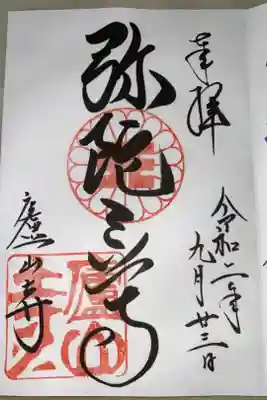 奉拝
令和二年
九月廿三日
弥陀三尊
廬山寺